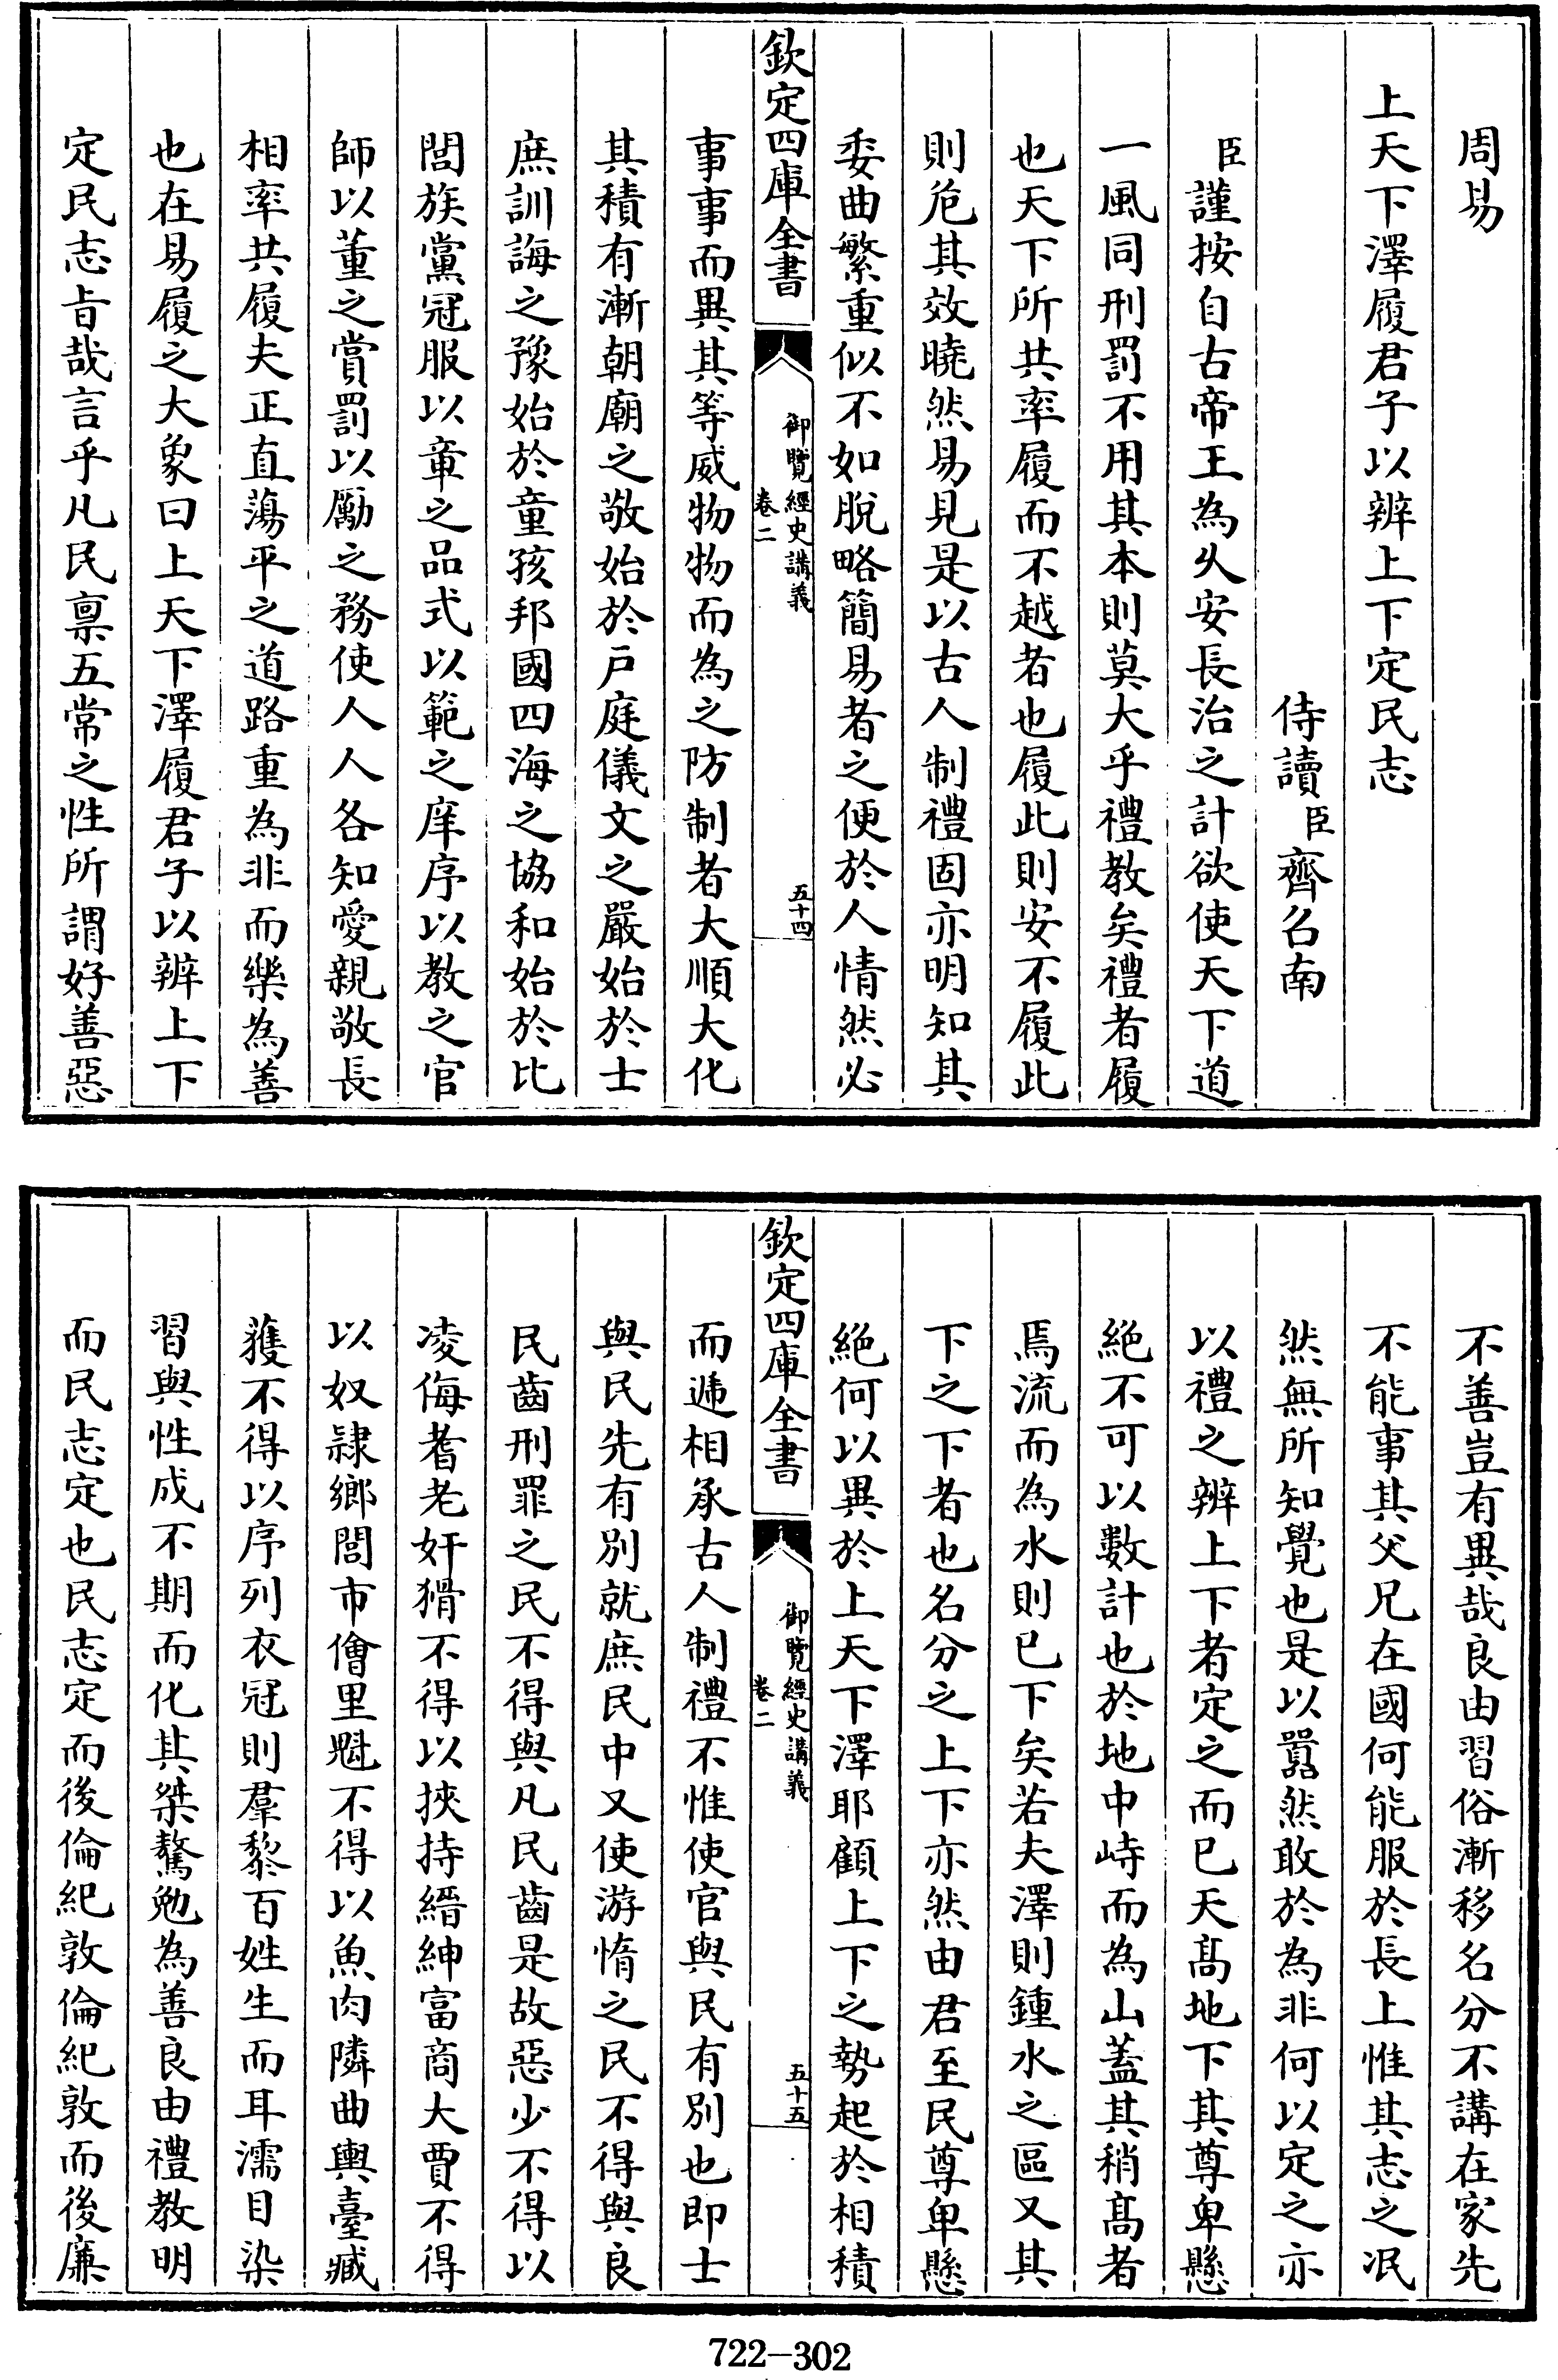 周易
上天下澤履君子以辨上下定民志
侍讀臣齊召南
臣謹按自古帝王為久安長治之計欲使天下道
一風同刑罰不用其本則莫大乎禮教矣禮者履
也天下所共率履而不越者也履此則安不履此
則危其效曉然易見是以古人制禮固亦明知其
委曲繁重似不如脫略簡易者之便於人情然必
欽定四庫全書
御覽經史講義
卷二
五十四
事事而異其等威物物而為之防制者大順大化
其積有漸朝廟之敬始於戶庭儀文之嚴始於士
庶訓誨之豫始於童孩邦國四海之協和始於比
閭族黨冠服以章之品式以範之庠序以教之官
師以董之賞罰以勵之務使人人各知愛親敬長
相率共履夫正直蕩平之道路重為非而樂為善
也在易履之大象曰上天下澤履君子以辨上下
定民志旨哉言乎凡民稟五常之性所謂好善惡
不善豈有異哉良由習俗漸移名分不講在家先
不能事其父兄在國何能服於長上惟其志之冺
然無所知覺也是以囂然敢於為非何以定之亦
以禮之辨上下者定之而已天髙地下其尊卑懸
絶不可以數計也於地中峙而為山葢其稍髙者
焉流而為水則已下矣若夫澤則鍾水之區又其
下之下者也名分之上下亦然由君至民尊卑懸
絶何以異於上天下澤耶顧上下之勢起於相積
欽定四庫全書
御覽經史講義
卷二
五十五
而遞相承古人制禮不惟使官與民有別也即士
與民先有別就庶民中又使游惰之民不得與良
民齒刑罪之民不得與凡民齒是故惡少不得以
凌侮耆老奸猾不得以挾持縉紳富商大賈不得
以奴隷鄉閭市儈里魁不得以魚肉隣曲輿臺臧
獲不得以序列衣冠則羣黎百姓生而耳濡目染
習與性成不期而化其桀驁勉為善良由禮教明
而民志定也民志定而後倫紀敦倫紀敦而後廉
722-302